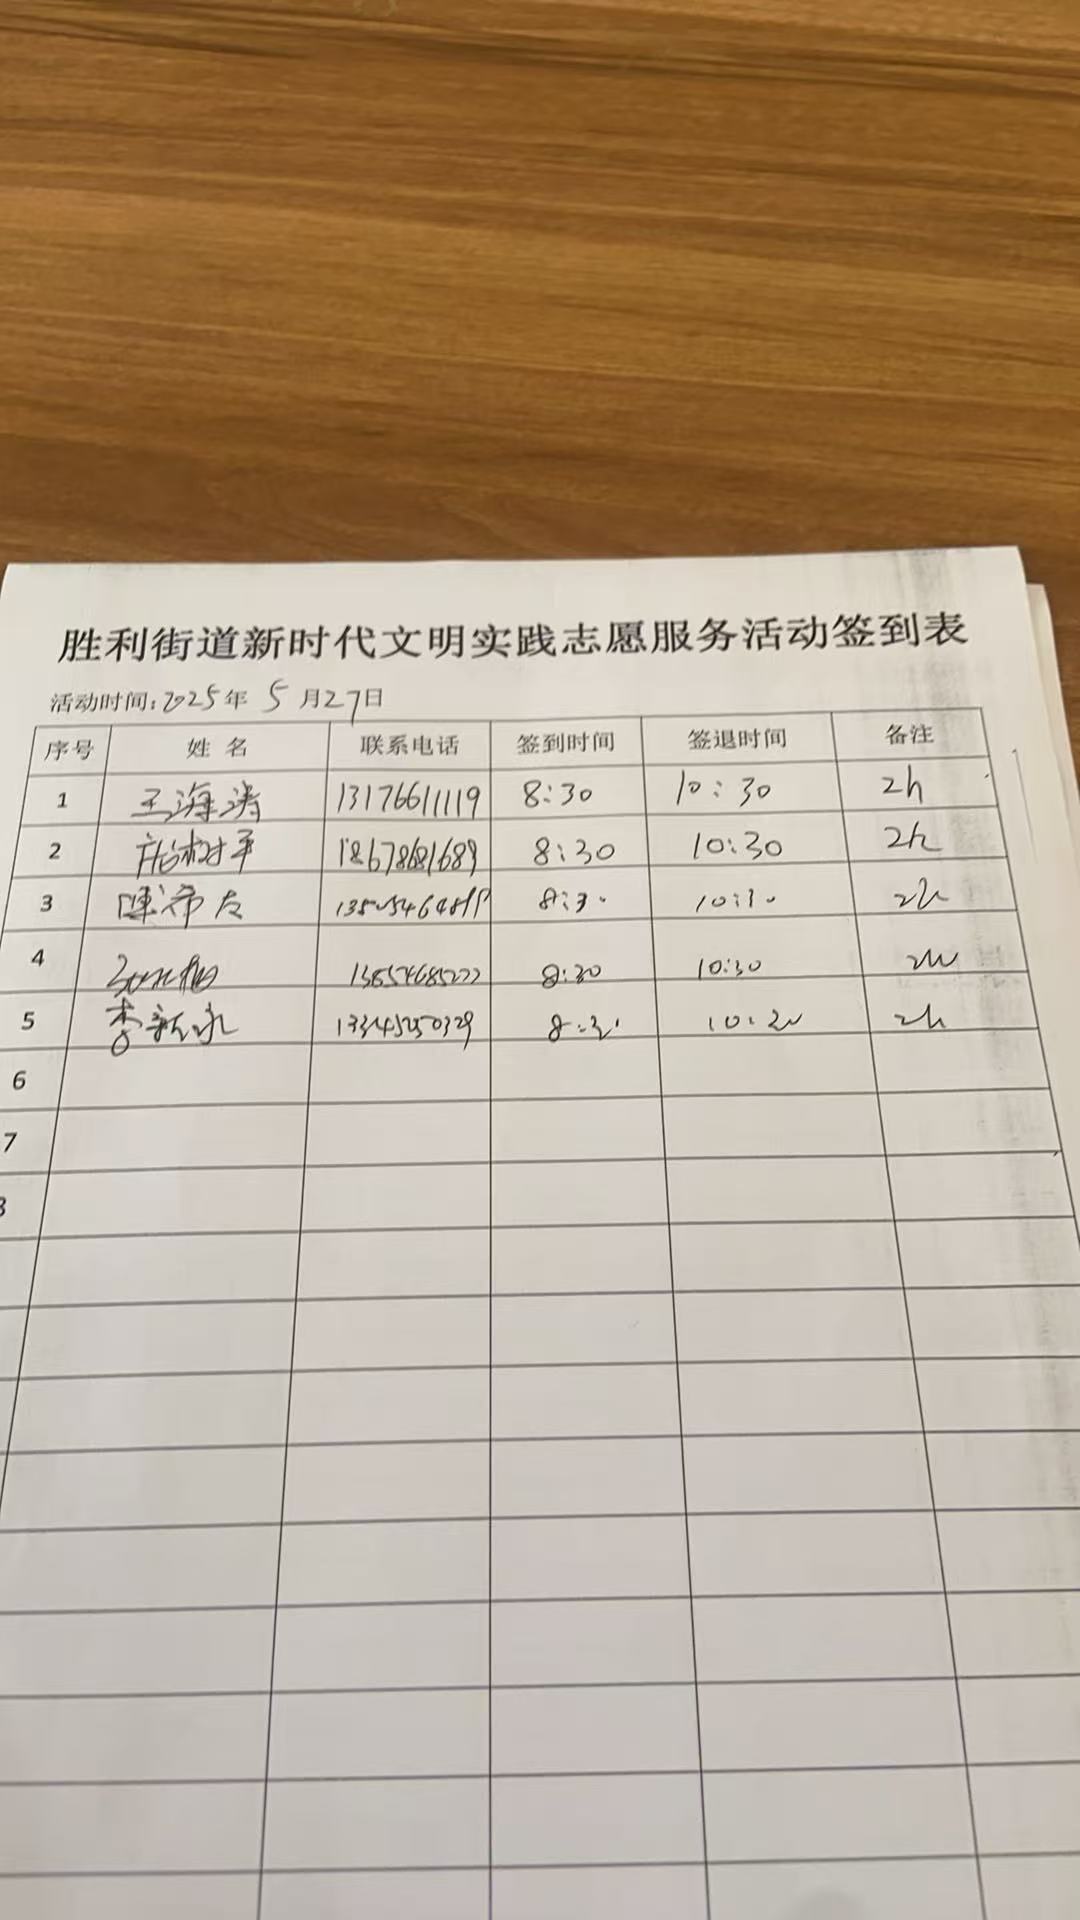 胜利街道新时代文明实践志愿服务活动签到表
活动时间:2025年 5 月27日
序号 姓名 联系电话 签到时间 签退时间 备注
1 王海涛 13176611119 8:30 10:30 2h
2 树平 18678681689 8:30 10:30 2h
3 陈希友 8:30 10:30 2h
4 13854685222 8:30 10:30 2h
5 李新永 13345250329 8:30 10:30 2h
6
7